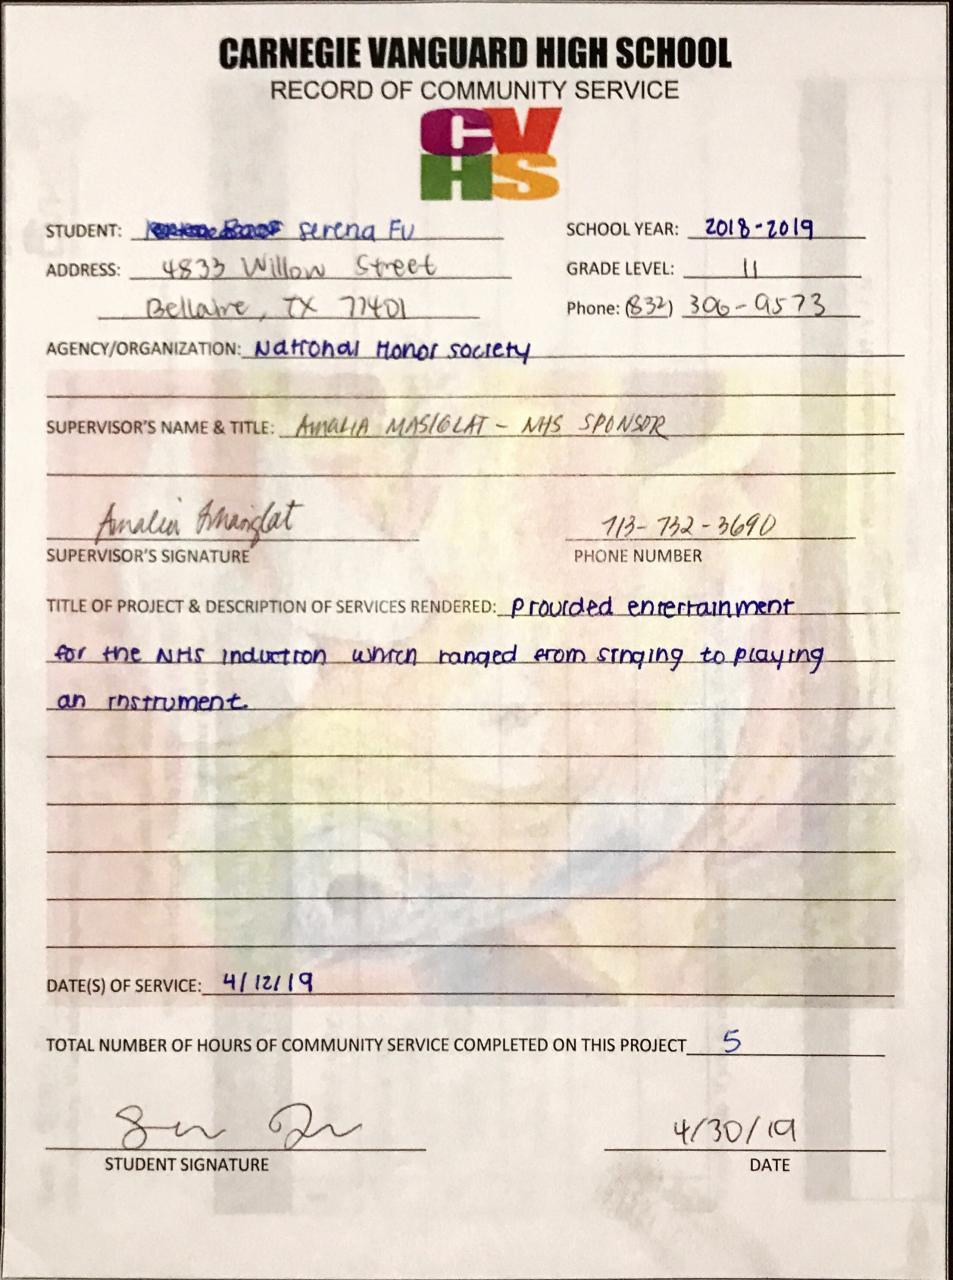 CARNEGIE VANGUARD HIGH SCHOOL
RECORD OF COMMUNITY SERVICE
CV
HS
STUDENT: Serena Fu SCHOOL YEAR: 2018-2019
ADDRESS: 4833 Willow Street GRADE LEVEL: 11
Bellaire, TX 77401 Phone: (832) 306-9573
AGENCY/ORGANIZATION: National Honor Society
SUPERVISOR'S NAME & TITLE: AMALIA MASIGLAT - NHS SPONSOR
Amalia Amasiglat 713-732-3690
SUPERVISOR'S SIGNATURE PHONE NUMBER
TITLE OF PROJECT & DESCRIPTION OF SERVICES RENDERED: Provided entertainment
for the NHS induction which ranged from singing to playing
an instrument.
DATE(S) OF SERVICE: 4/12/19
TOTAL NUMBER OF HOURS OF COMMUNITY SERVICE COMPLETED ON THIS PROJECT 5
4/30/19
STUDENT SIGNATURE DATE